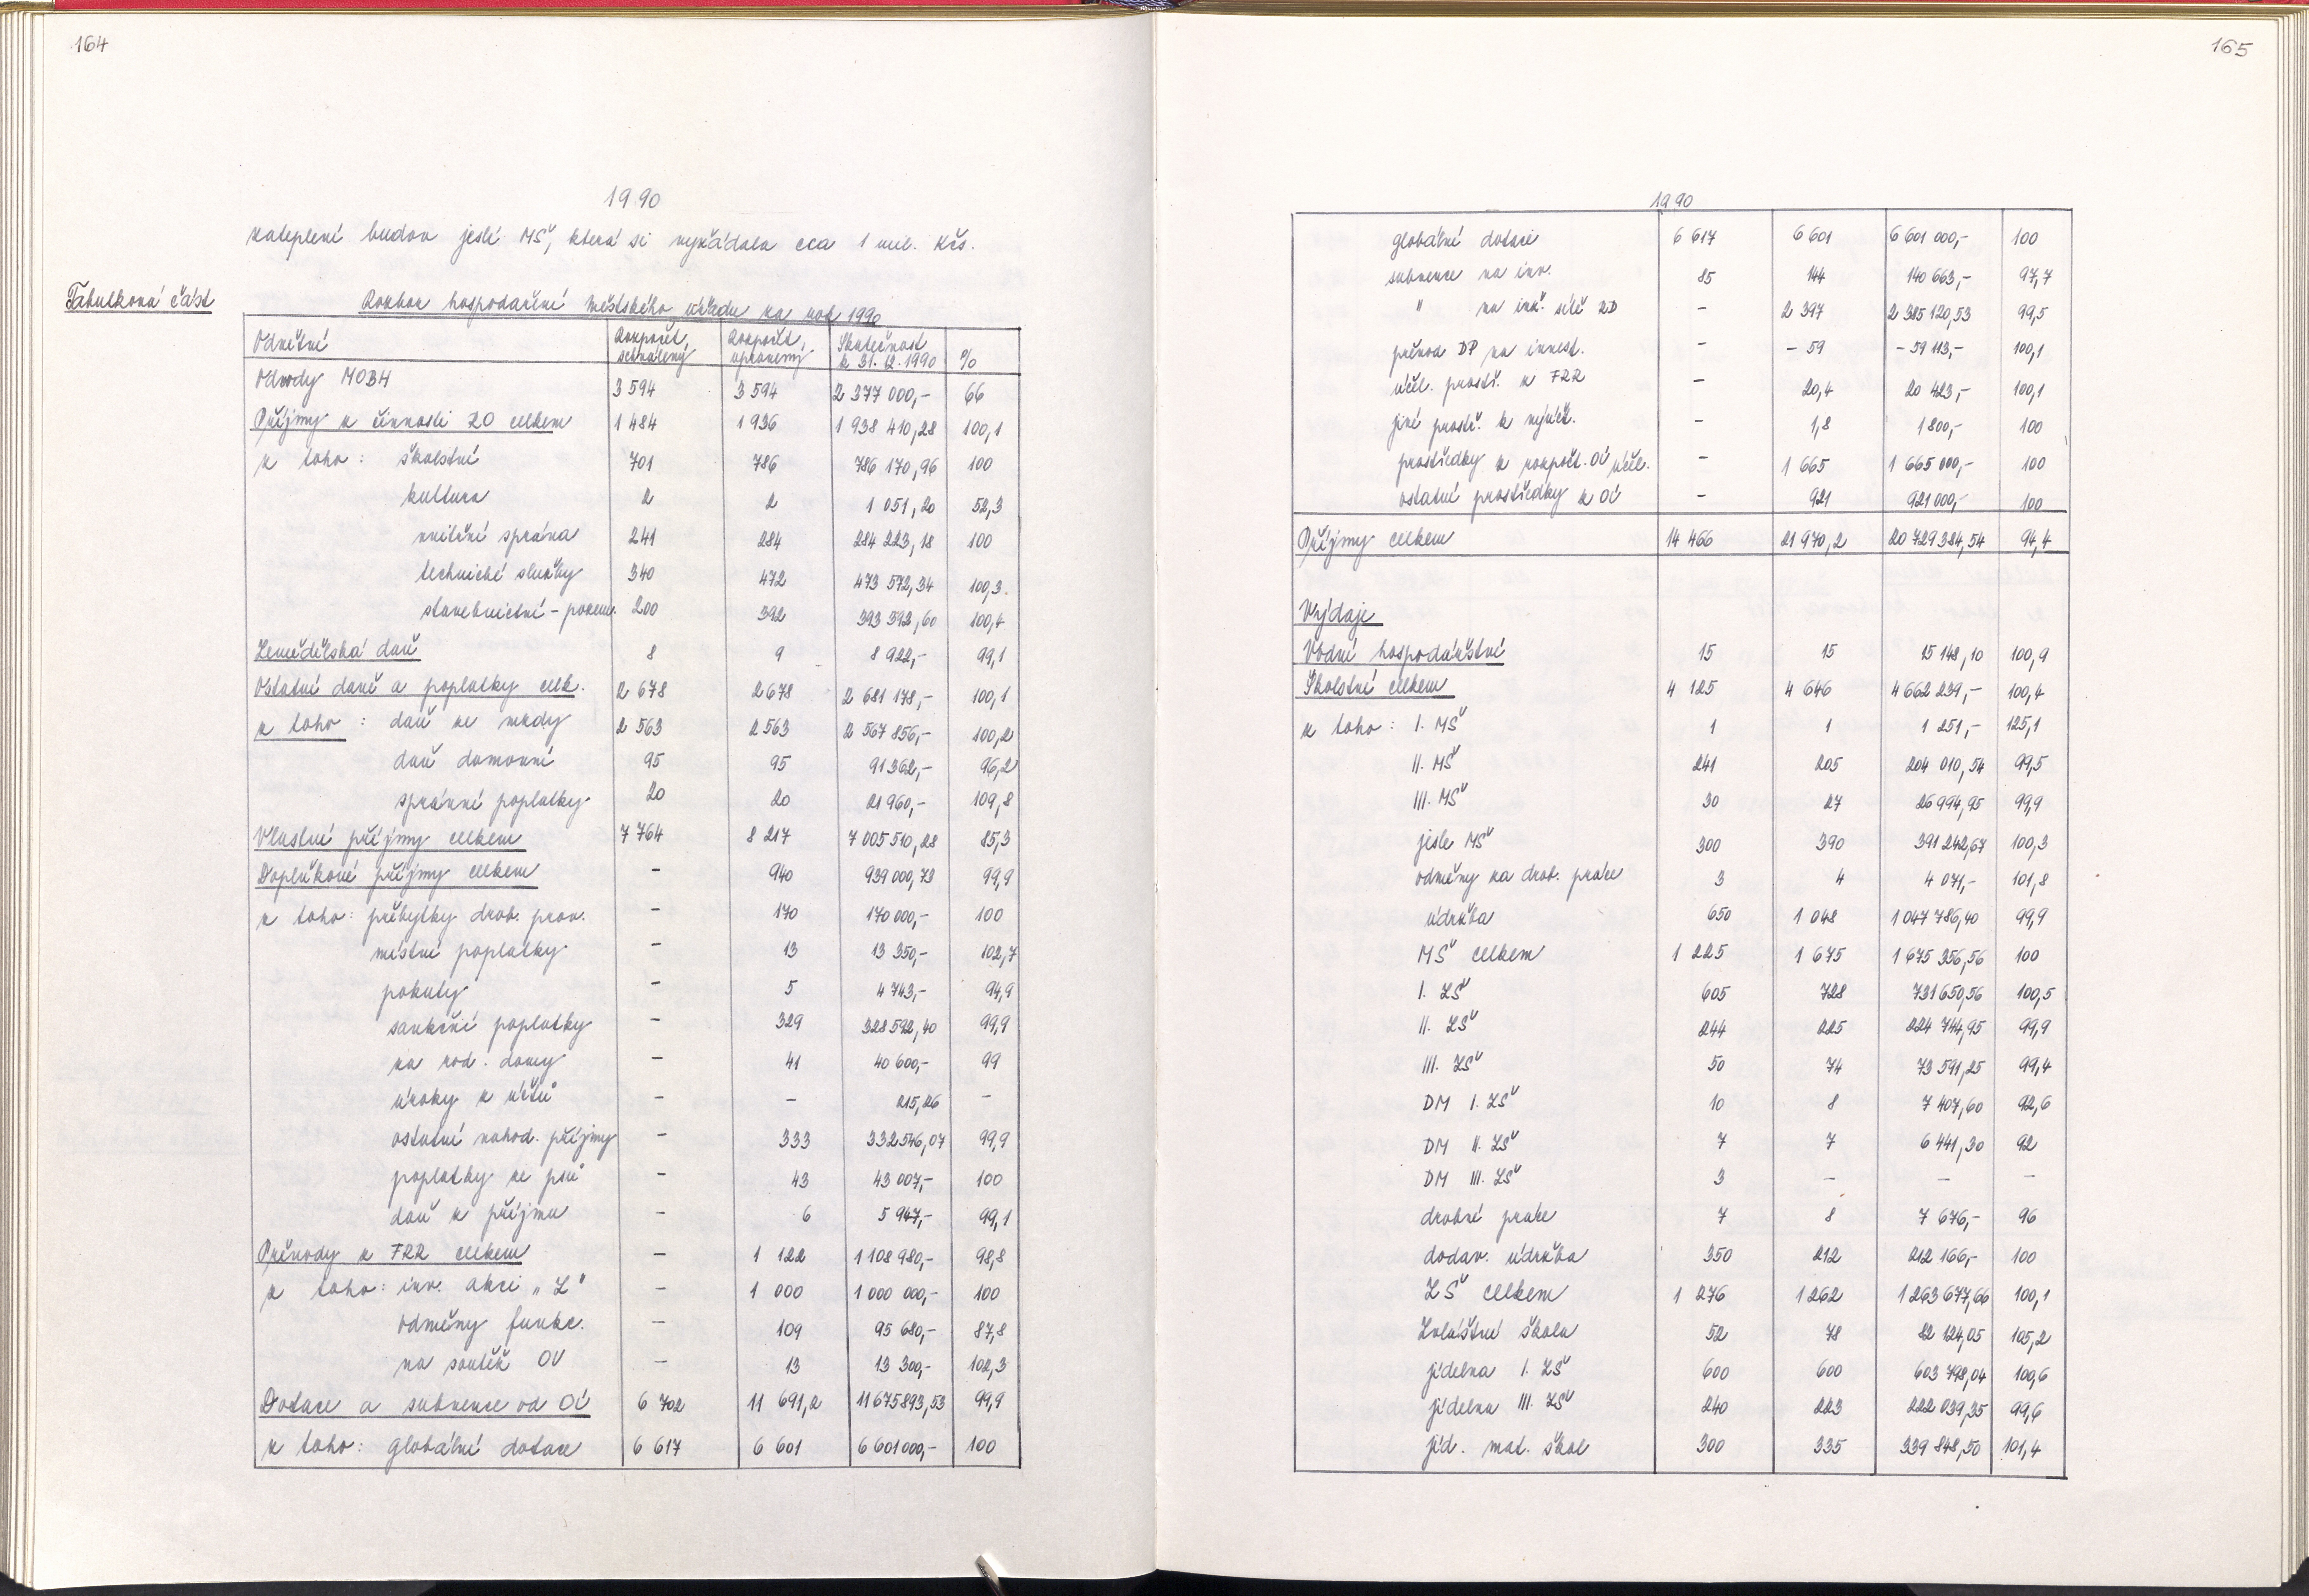 164
1990
zateplení budov jeslí MŠ, která si vyžádala cca 1 mil. Kčs.
Tabulková část
Rozbor hospodaření městského úřadu za rok 1990
Odvětví Rozpočet schválený Rozpočet upravený Skutečnost k 31.12.1990 %
Odvody MOBH 3 594 3 594 2 377 000,- 66
Příjmy z činnosti RO celkem 1 484 1 936 1 938 410,28 100,1
z toho: školství 701 786 786 170,96 100
kultura 2 2 1 051,20 52,3
vnitřní správa 241 284 284 223,18 100
technické služby 340 472 473 572,34 100,3
stavebnictví - pozem. 200 392 393 392,60 100,4
Zemědělská daň 8 9 8 922,- 99,1
Ostatní daně a poplatky celk. 2 678 2 678 2 681 178,- 100,1
z toho: daň ze mzdy 2 563 2 563 2 567 856,- 100,2
daň domovní 95 95 91 362,- 96,2
správní poplatky 20 20 21 960,- 109,8
Vlastní příjmy celkem 7 764 8 217 7 005 510,28 85,3
Doplňkové příjmy celkem - 940 939 000,73 99,9
z toho: přebytky drob. prov. - 170 170 000,- 100
místní poplatky - 13 13 350,- 102,7
pokuty - 5 4 743,- 94,9
sankční poplatky - 329 328 592,40 99,9
za rod. domy - 41 40 600,- 99
úroky z účtů - - 215,26 -
ostatní nahod. příjmy - 333 332 546,07 99,9
poplatky ze psů - 43 43 007,- 100
daň z příjmu - 6 5 947,- 99,1
Převody z FRR celkem - 1 122 1 108 980,- 98,8
z toho: inv. akci „Z" - 1 000 1 000 000,- 100
odměny funkc. - 109 95 680,- 87,8
na soutěž OV - 13 13 300,- 102,3
Dotace a subvence od OÚ 6 702 11 691,2 11 675 893,53 99,9
z toho: globální dotace 6 617 6 601 6 601 000,- 100
165
1990
globální dotaci 6 617 6 601 6 601 000,- 100
subvence na inv. 85 144 140 663,- 97,7
" na inž. sítě RD - 2 397 2 385 120,53 99,5
převod DP na invest. - - 59 - 59 113,- 100,1
účel. prostř. z FRR - 20,4 20 423,- 100,1
jiné prostř. k vyúčt. - 1,8 1 800,- 100
prostředky z rozpočt. OÚ účel. - 1 665 1 665 000,- 100
ostatní prostředky z OÚ - 921 921 000,- 100
Příjmy celkem 14 466 21 970,2 20 729 384,54 94,4
Výdaje
Vodní hospodářství 15 15 15 148,10 100,9
Školství celkem 4 125 4 646 4 662 239,- 100,4
z toho: I. MŠ 1 1 1 251,- 125,1
II. MŠ 241 205 204 010,54 99,5
III. MŠ 30 27 26 994,95 99,9
jesle MŠ 300 390 391 242,67 100,3
odměny za drob. práce 3 4 4 071,- 101,8
údržba 650 1 048 1 047 786,40 99,9
MŠ celkem 1 225 1 675 1 675 356,56 100
I. ZŠ 605 728 731 650,56 100,5
II. ZŠ 244 225 224 744,95 99,9
III. ZŠ 50 74 73 591,25 99,4
DM I. ZŠ 10 8 7 407,60 92,6
DM II. ZŠ 7 7 6 441,30 92
DM III. ZŠ 3 - - -
drobné práce 7 8 7 676,- 96
dodav. údržba 350 212 212 166,- 100
ZŠ celkem 1 276 1 262 1 263 677,66 100,1
Zvláštní škola 52 78 82 124,05 105,2
jídelna I. ZŠ 600 600 603 798,04 100,6
jídelna III. ZŠ 240 223 222 039,35 99,6
jíd. mat. škol 300 335 339 848,50 101,4